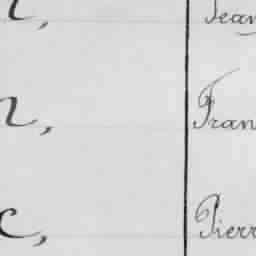 Jean
n, Fran
c, Pierr